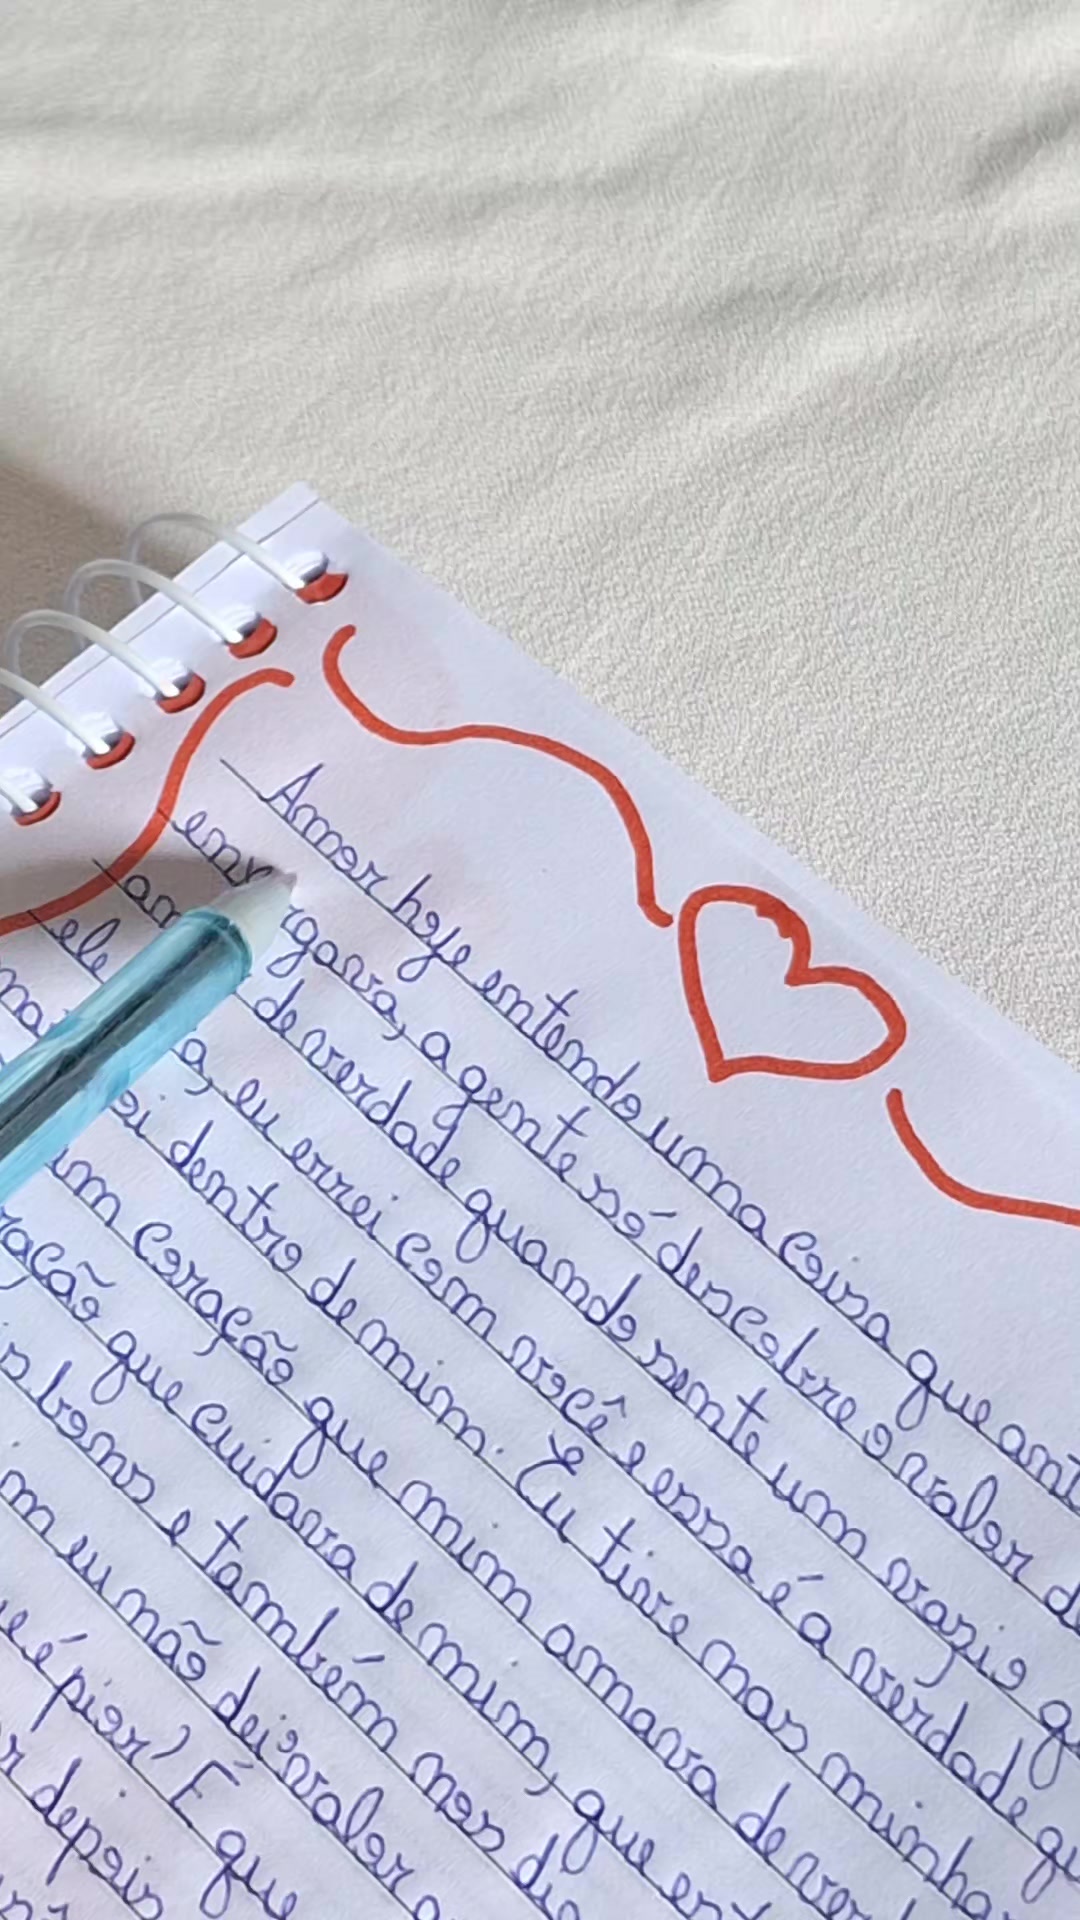 Amor hoje entendo uma coisa que ant
enxergava, a gente só descobre o valor d
am de verdade quando sente um vazio q
ele a, eu errei com você e essa é a verdade qu
ma ei dentro de mim. Eu tive nas minha
um coração que mim amava de ver
ração que cuidava de mim, que es
s bons e também nos di
m eu não dei valor a
e é pior? É que
r depois